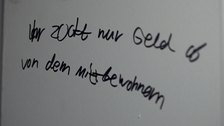 Var zockt nur Geld
von dem mitbewohnern